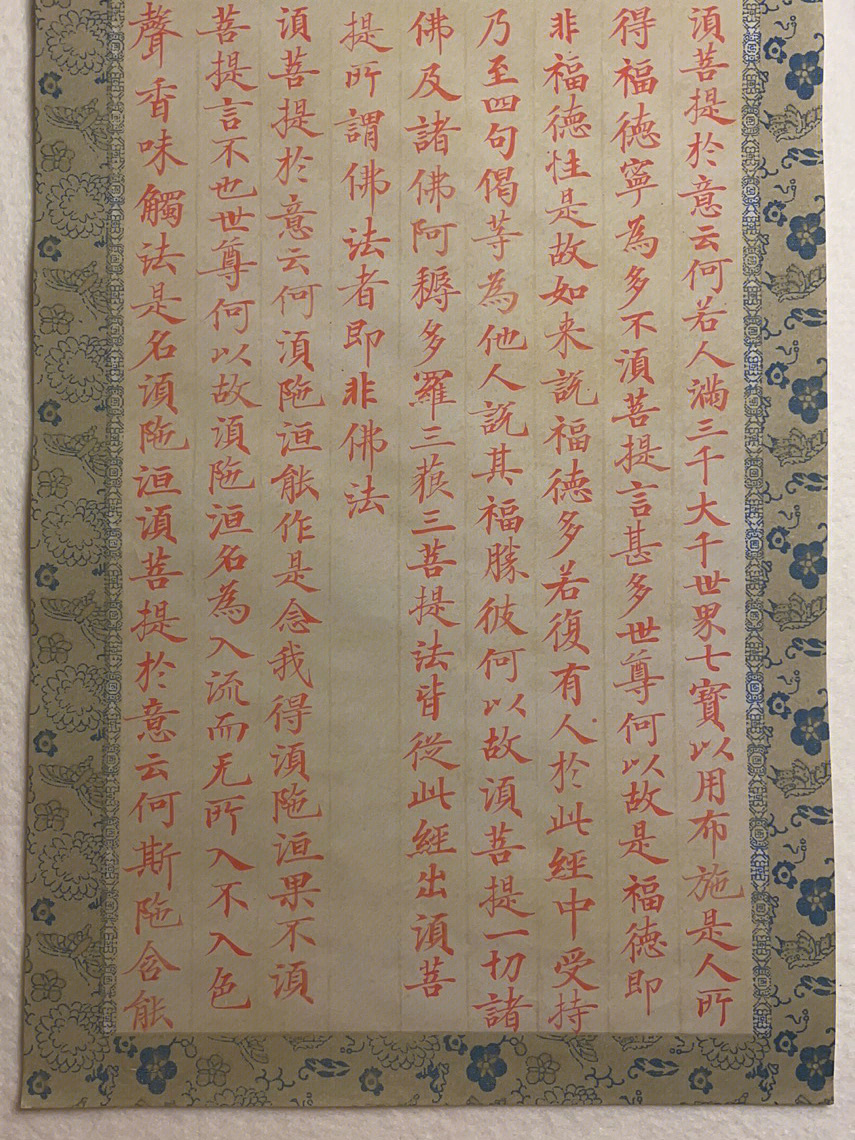 須菩提於意云何若人滿三千大千世界七寶以用布施是人所
得福德寧為多不須菩提言甚多世尊何以故是福德即
非福德性是故如来說福德多若復有人於此經中受持
乃至四句偈等為他人說其福勝彼何以故須菩提一切諸
佛及諸佛阿耨多羅三藐三菩提法皆從此經出須菩
提所謂佛法者即非佛法
須菩提於意云何須陁洹能作是念我得須陁洹果不須
菩提言不也世尊何以故須陁洹名為入流而无所入不入色
聲香味觸法是名須陁洹須菩提於意云何斯陁含能